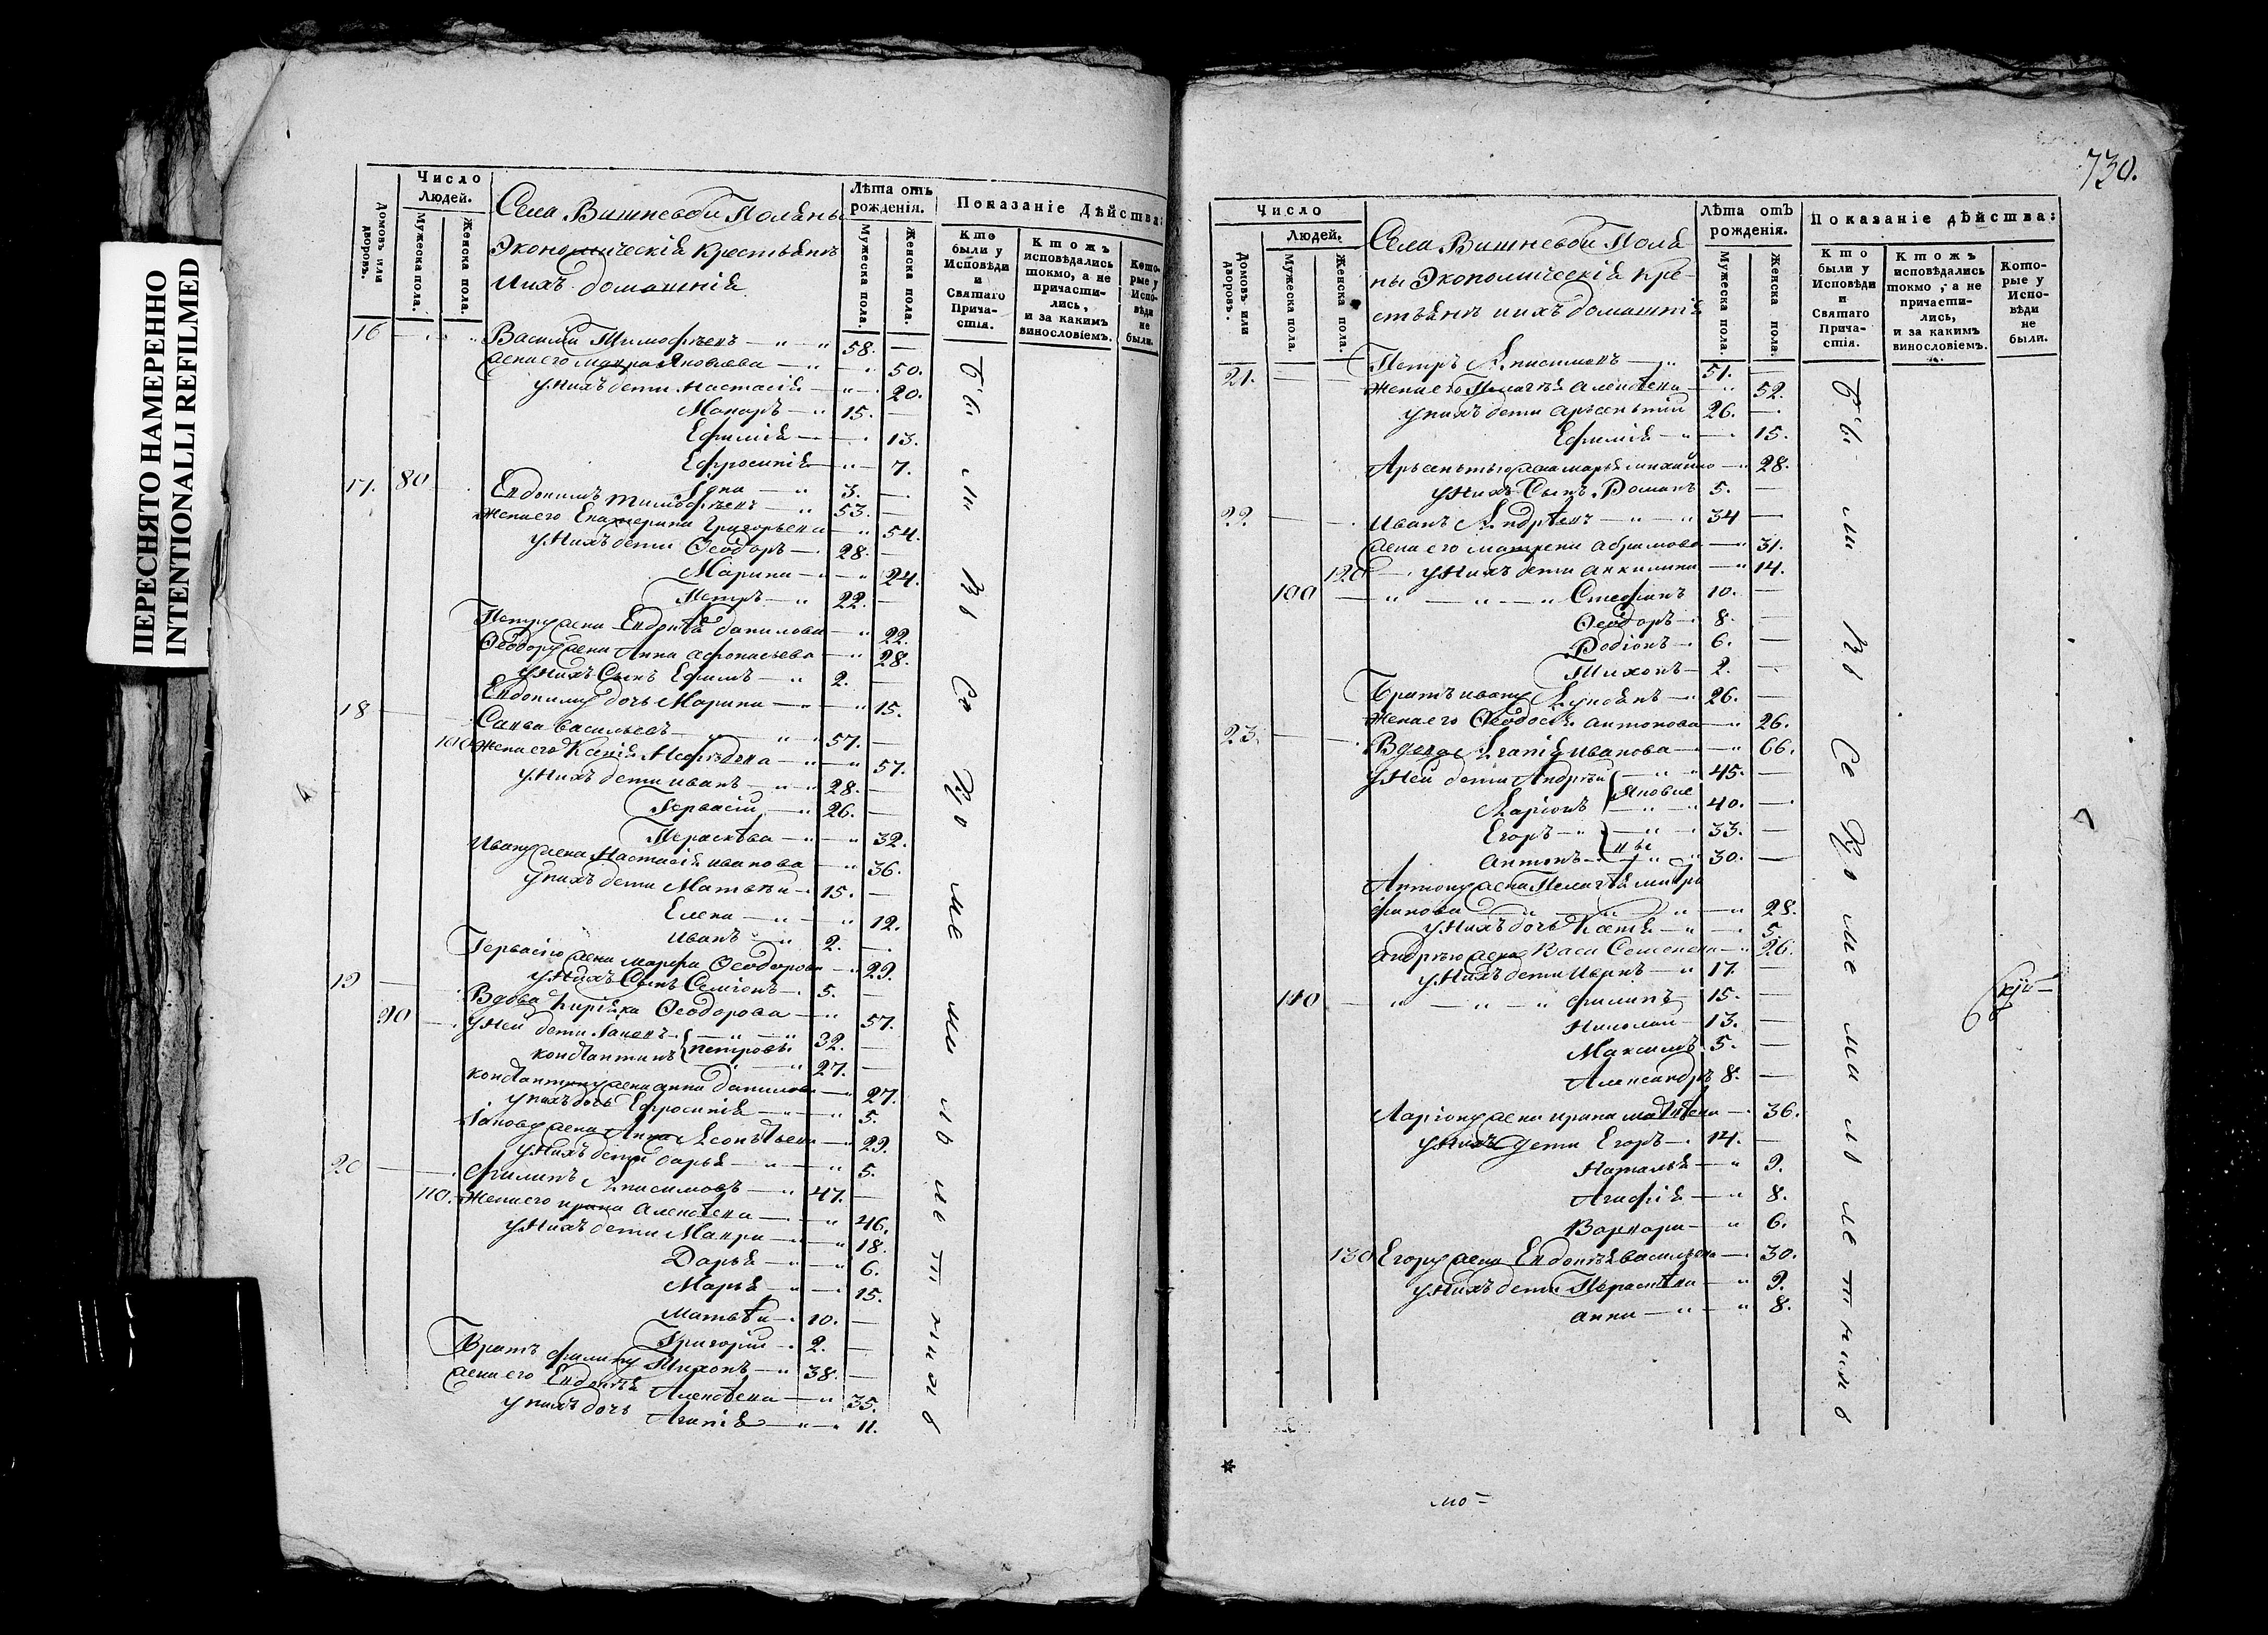 ПЕРЕСНЯТО НАМЕРЕННО
INTENTIONALLI REFILMED
Число
Людей.
Домовъ или дворовъ.
Мужеска пола.
Женска пола.
Села Вишневой Поляны
Экономическія крестьянъ
ихъ домашнія
Лѣта отъ
рожденія.
Мужеска пола.
Женска пола.
Показаніе Дѣйства:
Кто были у Исповѣди и Святаго Прича-стія.
Ктожъ исповѣдались токмо, а не причасти-лись, и за какимъ винословіемъ.
Кото-рые у Испо-вѣди не были.
16 Василій Тимофѣевъ 58.
жена его Яковлева 50.
у нихъ дети Настасія 20.
Макаръ 15.
Ефимія 13.
Ефросинія 7.
80 3.
17. Евдокимъ Тимофѣевъ 53.
жена его Екатерина Григорьева 54.
у нихъ дети Ѳеодоръ 28.
Марина 24.
Петръ 22.
Петру жена Данилова 22.
Ѳеодору жена Анна Афонасьева 28.
у нихъ сынъ Ефимъ 2.
Евдокиму дочь Марина 15.
18 Савва Васильевъ 57.
100 жена его Ксенія 57.
у нихъ дети Иванъ 28.
Гервасій 26.
Параскѣва 32.
Ивану жена Настасія Иванова 36.
у нихъ дети Матвѣй 15.
Елена 12.
Иванъ 2.
Гервасію жена Марфа Ѳеодорова 29.
у нихъ сынъ Семіонъ 5.
19 Вдова Ѳеодорова 57.
90 у ней дети Іаковъ 32.
Константинъ Петровы 27.
Константину жена Анна Данилова 27.
у нихъ дочь Ефросинія 5.
Іакову жена Анна Леонтьева 29.
у нихъ дети Дарья 5.
20 Филипъ Анисимовъ 47.
110. жена его Ирина Алексѣева 46.
у нихъ дети Мавра 18.
Дарья 6.
Марья 15.
Матвѣй 10.
Григорій 2.
Братъ Филипу Тихонъ 38.
жена его Алексѣева 35.
у нихъ дочь Агапія 11.
730.
Число
Людей.
Домовъ или дворовъ.
Мужеска пола.
Женска пола.
Села Вишневой Поля
ны Экономическія кре-
стьянъ ихъ домашнія
Лѣта отъ
рожденія.
Мужеска пола.
Женска пола.
Показаніе дѣйства:
Кто были у Исповѣди и Святаго Прича-стія.
Ктожъ исповѣдались токмо, а не причасти-лись, и за какимъ винословіемъ.
Кото-рые у Испо-вѣди не были.
21. Петръ Анисимовъ 51.
жена его Алексѣева 52.
у нихъ дети Арсентій 26.
Ефимія 15.
Арсентью жена Марья Михайло 28.
у нихъ сынъ Романъ 5.
22. Иванъ Андрѣевъ 34
жена его Матрена Абрамова 31.
120 у нихъ дети Аккилина 14.
100 Стефанъ 10.
Ѳеодоръ 8.
Родіонъ 6.
Тихонъ 2.
Братъ Ивану Лукьянъ 26.
жена его Ѳеодосія Антонова 26.
23. Вдова Иванова 66.
у ней дети Андрѣй 45.
Ларіонъ 40.
Егоръ 33.
Антонъ 30.
Антону жена Пелагѣя Митро
фанова 28.
у нихъ дочь 5.
Андрѣю жена Васа Семенова 26.
у нихъ дети 17.
110 Филипъ 15.
Николай 13.
Максимъ 5.
Александръ 8.
Ларіону жена Ирина Матвѣева 36.
у нихъ дети Егоръ 14.
Наталья 9.
Агафія 8.
Варвара 6.
130 Егору жена Евдокія Васильева 30.
у нихъ дети Параскѣва 9.
Анна 8.
мо-